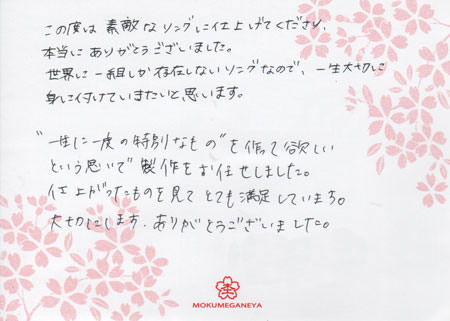 この度は素敵なリングに仕上げてくださり、
本当にありがとうございました。
世界に一組しか存在しないリングなので、一生大切に
身に付けていきたいと思います。
"一生に一度の特別なもの"を作って欲しい
という思いで製作をお任せしました。
仕上がったものを見てとても満足しています。
大切にします。ありがとうございました。
MOKUMEGANEYA